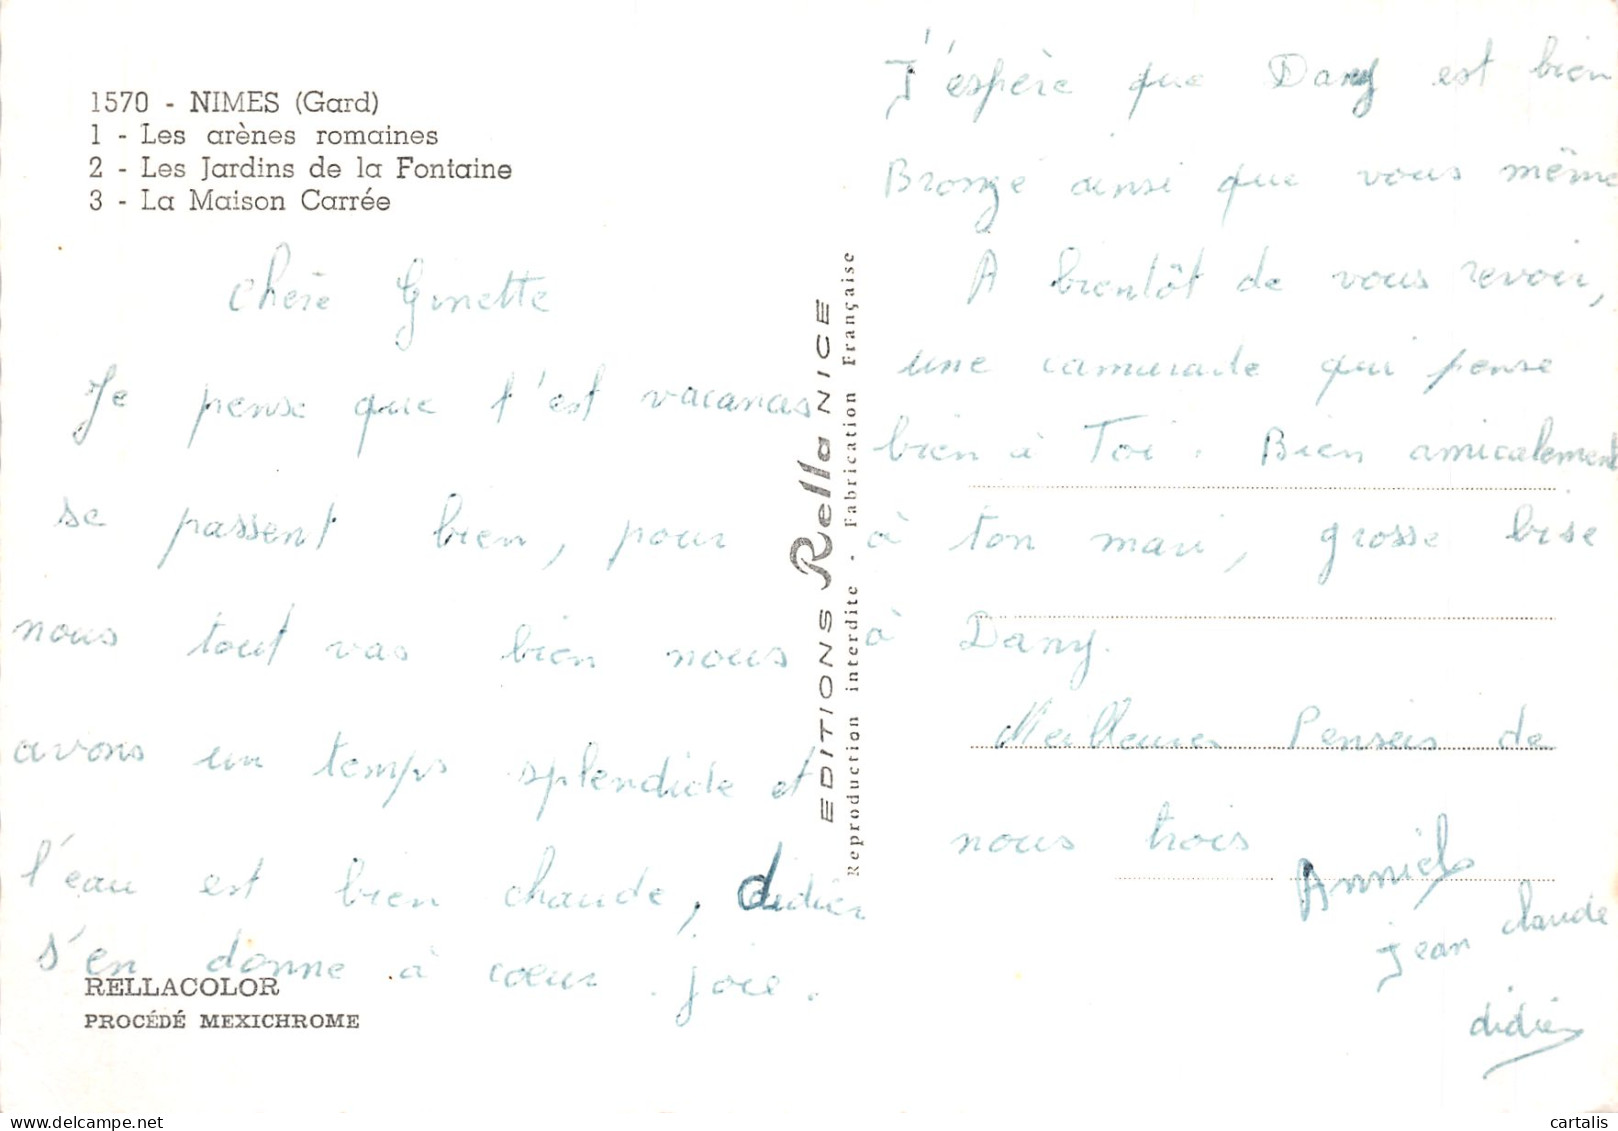 1570 - NIMES (Gard)
1 - Les arènes romaines
2 - Les Jardins de la Fontaine
3 - La Maison Carrée
Chère Ginette
Je pense que t'est vacances
se passent bien, pour
nous tout vas bien nous
avons un temps splendide et
l'eau est bien chaude, didier
s'en donne à coeur joie.
RELLACOLOR
PROCÉDÉ MEXICHROME
EDITIONS Rella NICE
Reproduction interdite - Fabrication Française
J'espère que Dany est bien
Bronzé ainsi que vous même
A bientôt de vous revoir,
une camarade qui pense
bien à Toi. Bien amicalement
à ton mari, grosse bise
à Dany.
Meilleures Pensées de
nous trois
Annick
jean claude
didier
cartalis